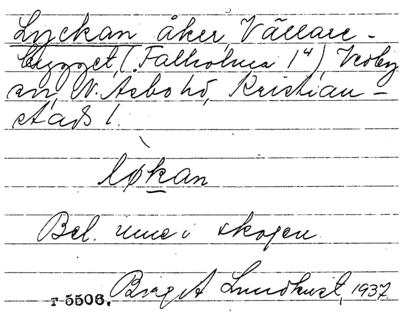 Lyckan åker Vällare-
bygget, (Falholma 1⁴) Verby
sn, N. Åsbo hd, Kristian-
stads l.
lökan
Bel. inne i skogen
Birgit Lundkvist, 1937
F 5506.